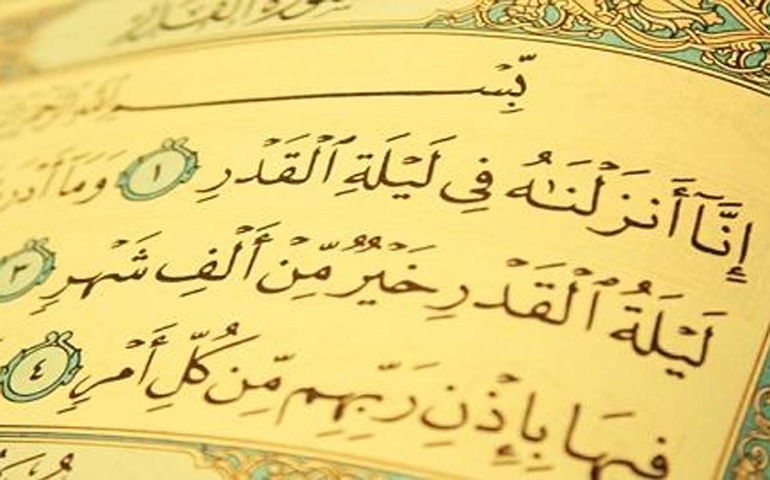 سورة القدر
بِّسْمِ اللَّهِ الرَّحْمَٰنِ الرَّحِيمِ
إِنَّآ أَنزَلْنَـٰهُ فِى لَيْلَةِ ٱلْقَدْرِ ١ وَمَآ أَدْرَ
لَيْلَةُ ٱلْقَدْرِ خَيْرٌ مِّنْ أَلْفِ شَهْرٍ ٣
فِيهَا بِإِذْنِ رَبِّهِم مِّن كُلِّ أَمْرٍ ٤